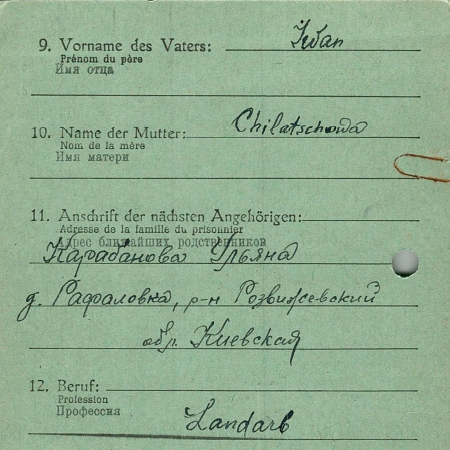 9. Vorname des Vaters: Iwan
Prénom du père
Имя отца
10. Name der Mutter: Chilatschowa
Nom de la mère
Имя матери
11. Anschrift der nächsten Angehörigen:
Adresse de la famille du prisonnier
Адрес ближайших родственников
Карабанова Ульяна
д. Рафаловка, р-н Розвижевский
обл. Киевская
12. Beruf:
Profession
Профессия
Landarb